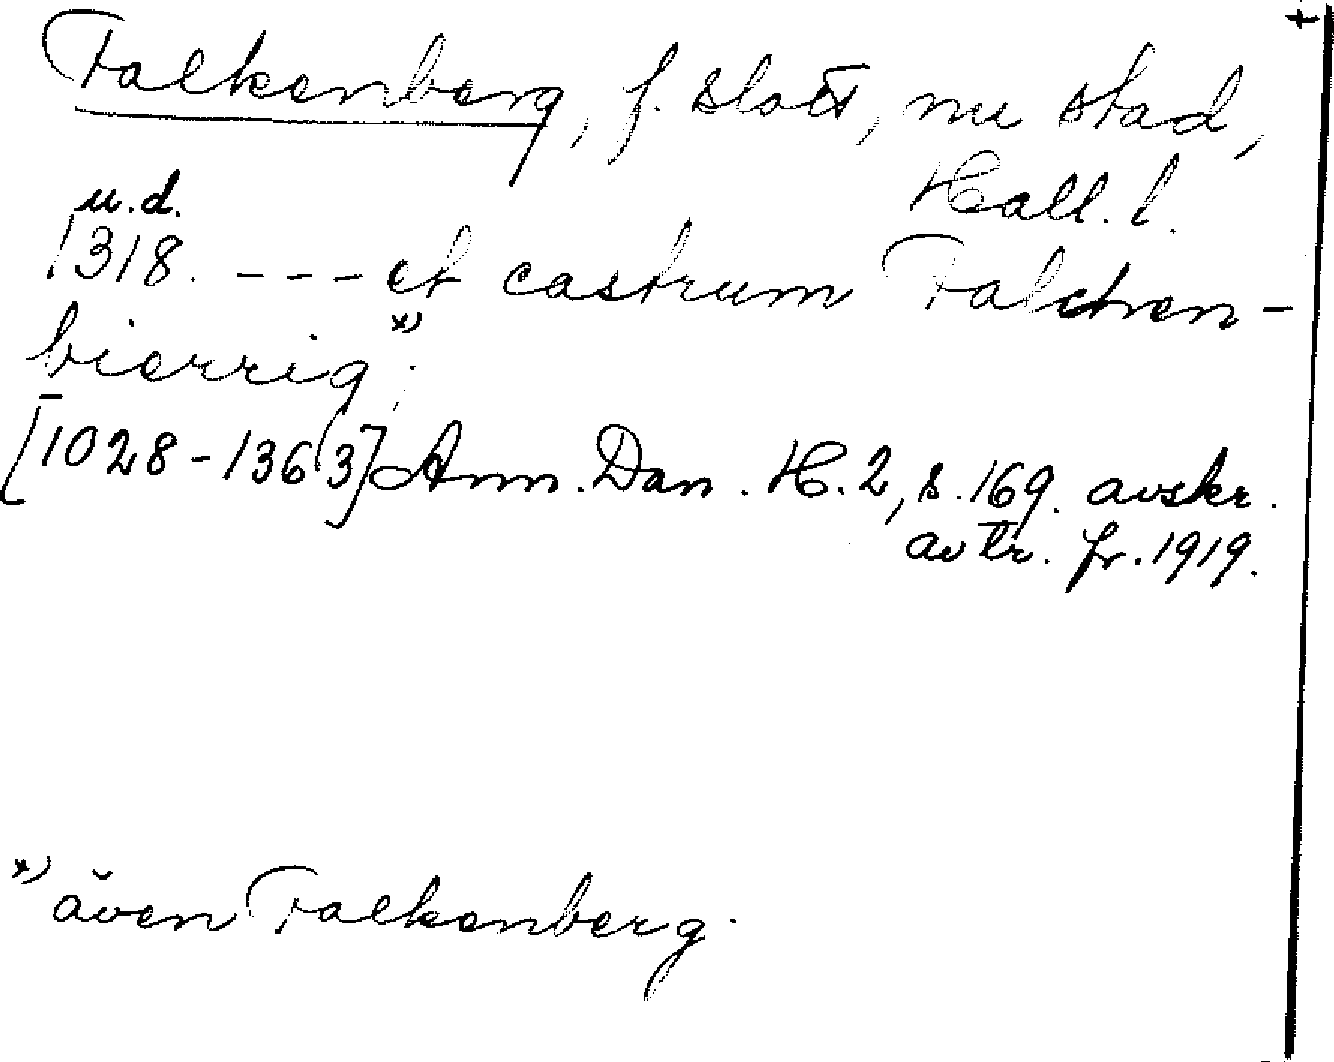 Falkenberg, f. slott, nu stad,
Hall. l.
u.d.
1318. --- et castrum Falchen-
bierrig *);
[1028-1363] Ann. Dan. H. 2, s. 169. avskr.
av tr. fr. 1919.
*) även Falkenberg.